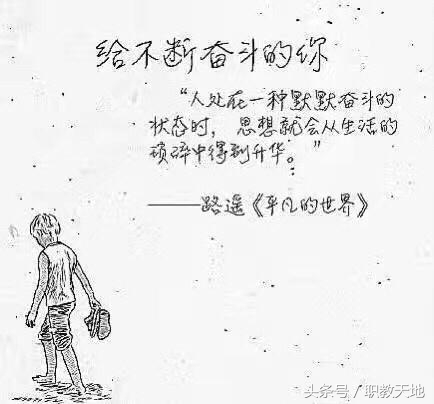 给不断奋斗的你
“人处在一种默默奋斗的
状态时，思想就会从生活的
琐碎中得到升华。”
——路遥《平凡的世界》
头条号／职教天地